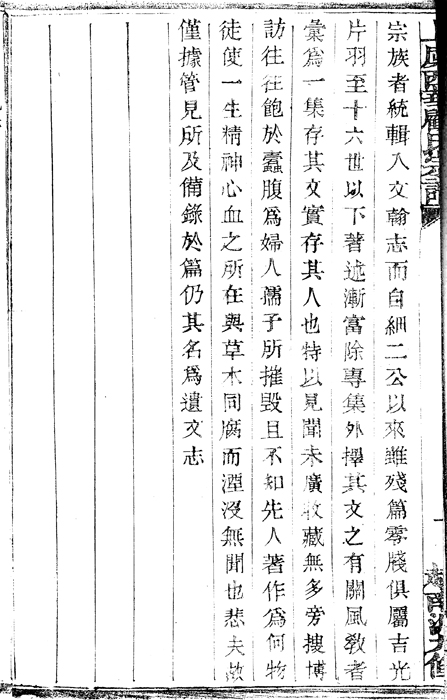 宗族者統輯入文翰志而自細二公以來雖殘篇零牋俱屬吉光
片羽至十六世以下著述漸富除專集外擇其文之有關風敎者
彙爲一集存其文實存其人也特以見聞未廣收藏無多旁搜博
訪往往飽於蠹腹爲婦人孺子所摧毀且不知先人著作爲何物
徒使一生精神心血之所在與草木同腐而湮沒無聞也悲夫故
僅據管見所及備錄於篇仍其名爲遺文志